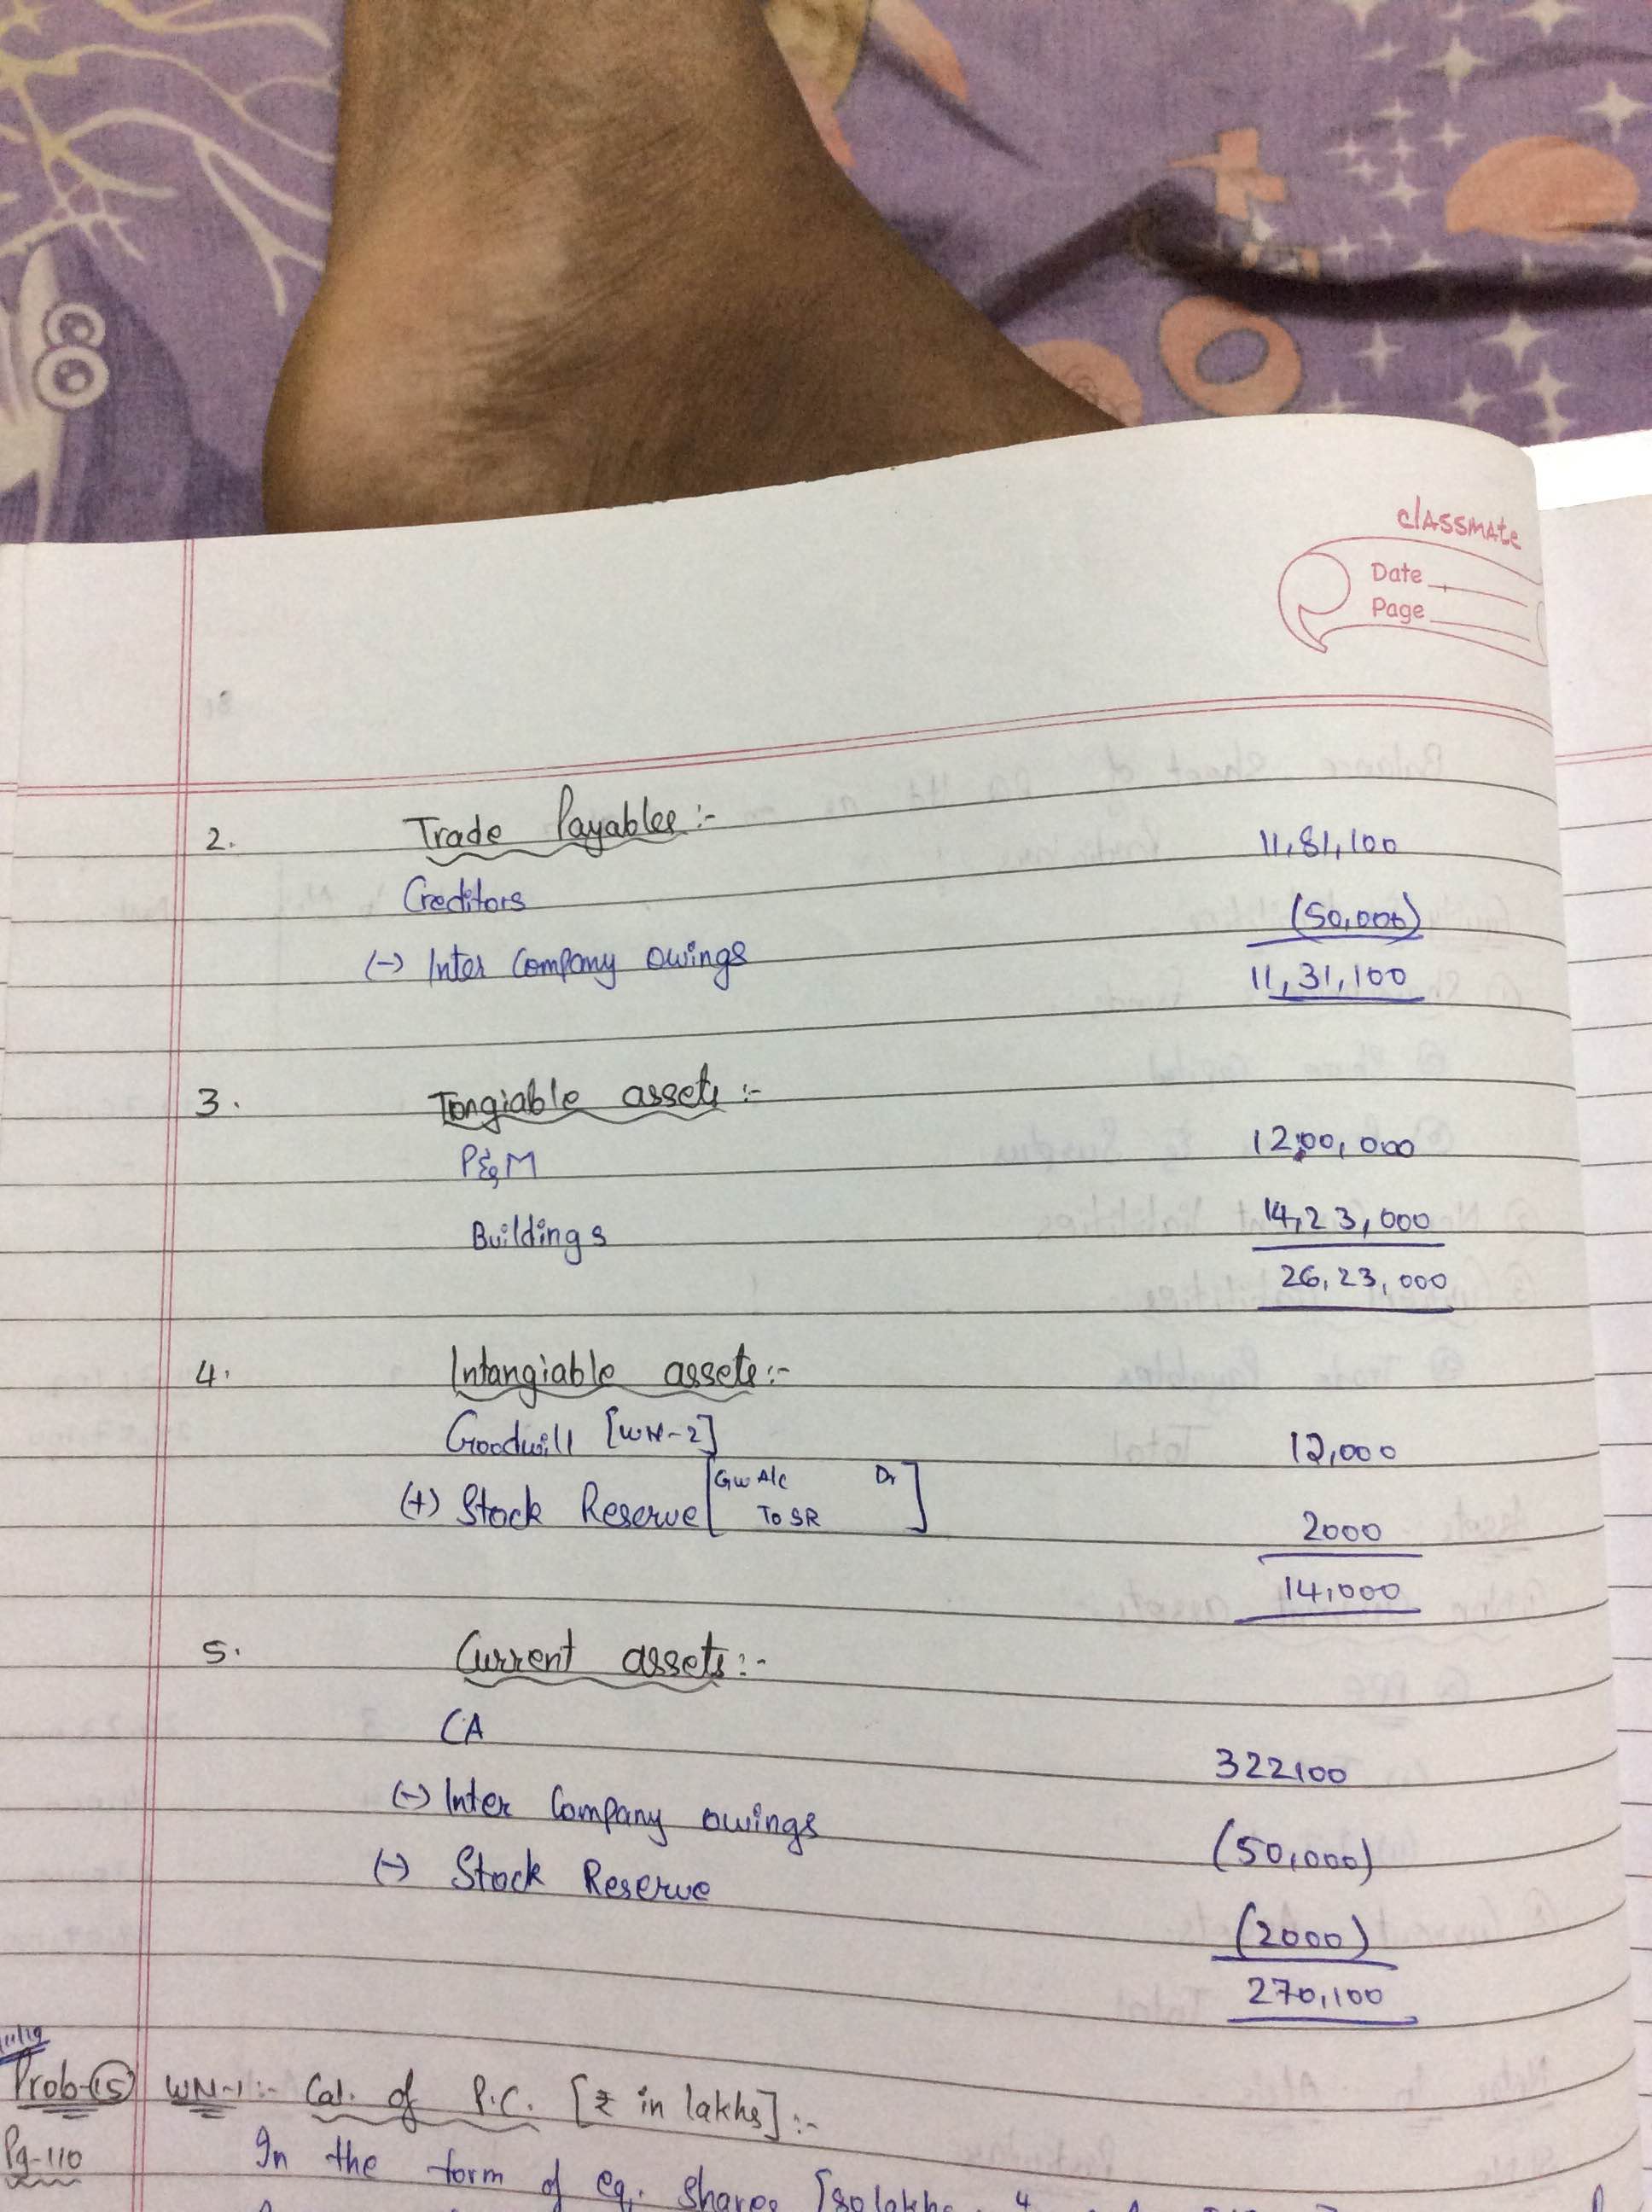 classmate
Date
Page
2. Trade Payables :-
Creditors 11,81,100
(-) Inter Company owings (50,000)
11,31,100
3. Tangiable assets :-
P&M 12,00,000
Buildings 14,23,000
26,23,000
4. Intangiable assets :-
Goodwill [WN-2] 12,000
(+) Stock Reserve [GW A/c Dr
To SR] 2000
14,000
5. Current assets :-
CA 322100
(-) Inter Company owings (50,000)
(-) Stock Reserve (2000)
270,100
11/19
Prob-(15) WN-1:- Cal. of P.C. [₹ in lakhs] :-
Pg-110 In the form of eq. shares